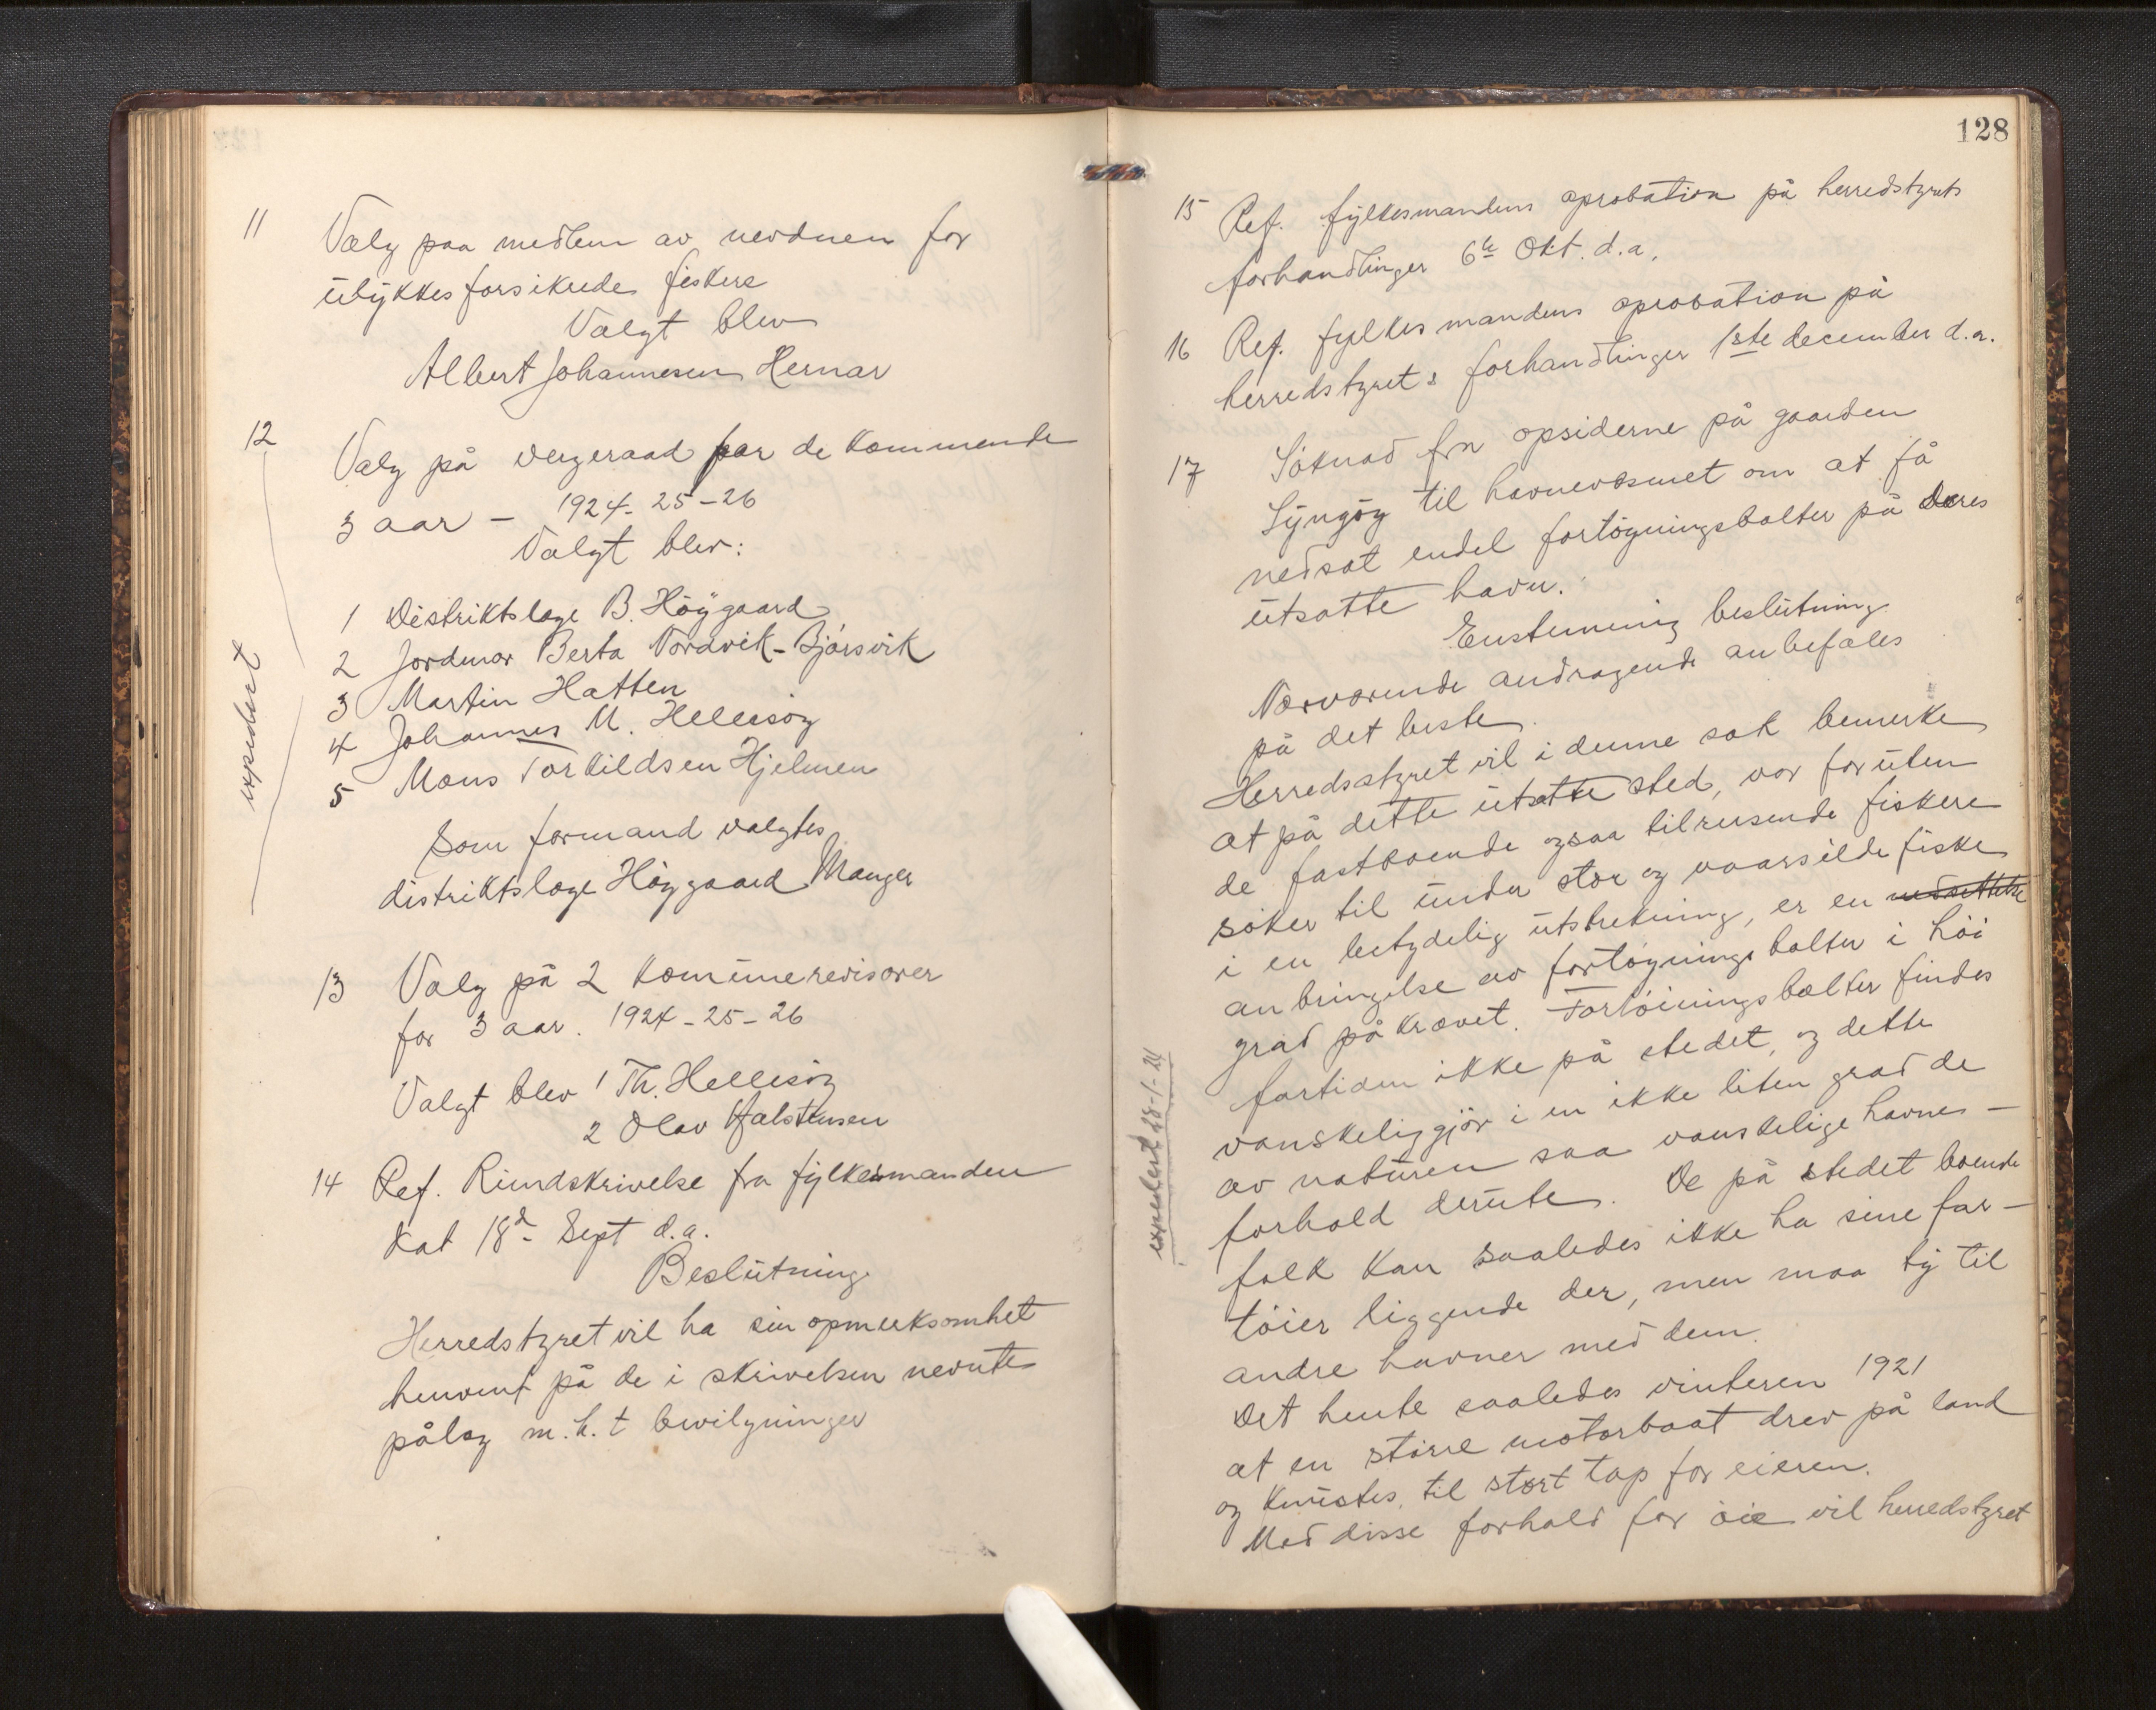 11 Valg paa medlem av nevdnen for
ulykkesforsikrede fiskere
Valgt blev
Albert Johannesen Hernar
12 Valg på vergeraad for de kommende
3 aar – 1924-25-26
Valgt blev:
1 Distriktslæge B. Höygaard
2 Jordmor Berta Nordvik-Bjørsvik
3 Martin Hatten
4 Johannes M. Hellesöy
5 Mons Torkildsen Hjelmen
expedert
Som formand valgtes
distriktslæge Höygaard Manger
13 Valg på 2 kommunerevisorer
for 3 aar. 1924-25-26
Valgt blev 1 Th. Hellesöy
2 Olav Halstensen
14 Ref. Rundskrivelse fra fylkesmanden
dat 18d Sept d.a.
Beslutning
Herredstyret vil ha sin opmerksomhet
henvent på de i skrivelsen nevnte
pålæg m.h.t bevilgninger
128
15 Ref. fylkesmandens aprobation på herredstyrets
forhandlinger 6te Okt. d.a.
16 Ref. fylkesmandens aprobation på
herredstyrets forhandlinger 1ste december d.a.
17 Söknad fra opsiderne på gaarden
Syngöy til havnevæsenet om at få
nedsat endel fortöyningsbolter på deres
utsatte havn.
Enstemmig beslutning
Nærværende andragende anbefales
på det beste.
Herredsstyret vil i denne sak bemerke
at på dette utsatte sted, vor foruten
de fastboende ogsaa tilreisende fiskere
söker til under stor og vaarsildefiske
i en betydelig utstrekning, er en nedsettelse
anbringelse av fortöynings bolter i höi
grad påkrævet. Fortöiningsbolter findes
fortiden ikke på stedet, og dette
vanskeliggjör i en ikke liten grad de
av naturen saa vanskelige havne-
forhold derute. De på stedet boende
folk kan saaledes ikke ha sine far-
töier liggende der, men maa ty til
andre havner med dem.
Det hente saaledes vinteren 1921
at en större motorbaat drev på land
og knustes, til stort tap for eieren.
Med disse forhold for öie vil herredstyret
expedert 28-1-24